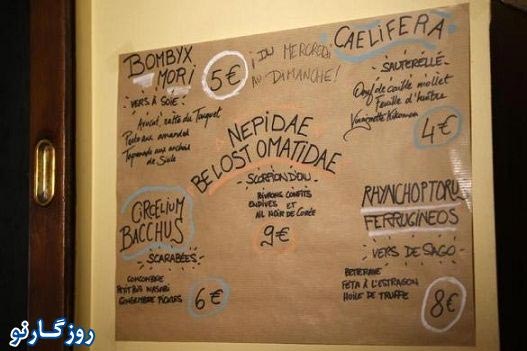 BOMBYX
MORI
5€
VERS À SOIE:
Avocat, ratte du Touquet
Pesto aux amandes
Tapenade aux anchois
de Sicile
¡ DU MERCREDI
AU DIMANCHE!
CAELIFERA
SAUTERELLE
Oeuf de caille mollet
Feuille d'huître
Vinaigrette Kikkoman
4€
NEPIDAE
BELOSTOMATIDAE
SCORPION D'EAU
POIVRONS CONFITS
ENDIVES ET
AIL NOIR DE CORÉE
9€
CIRCELIUM
BACCHUS
SCARABÉES
CONCOMBRE
PETIT POIS WASABI
GINGEMBRE PICKLES
6€
RHYNCHOPTORU
FERRUGINEOS
VERS DE SAGO
BETTERAVE
FETA À L'ESTRAGON
HUILE DE TRUFFE
8€
روزگارنو